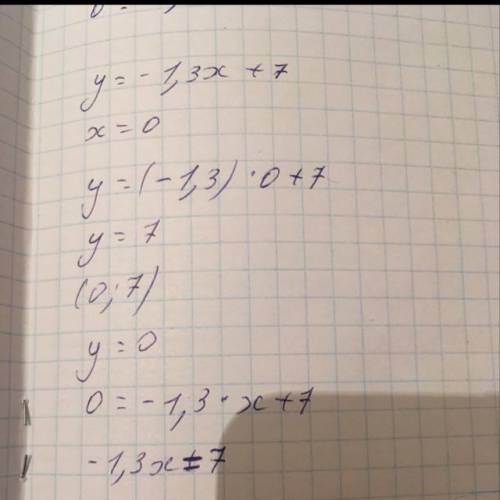 y = - 1,3x + 7
x = 0
y = (- 1,3) · 0 + 7
y = 7
(0; 7)
y = 0
0 = - 1,3 · x + 7
- 1,3x = 7